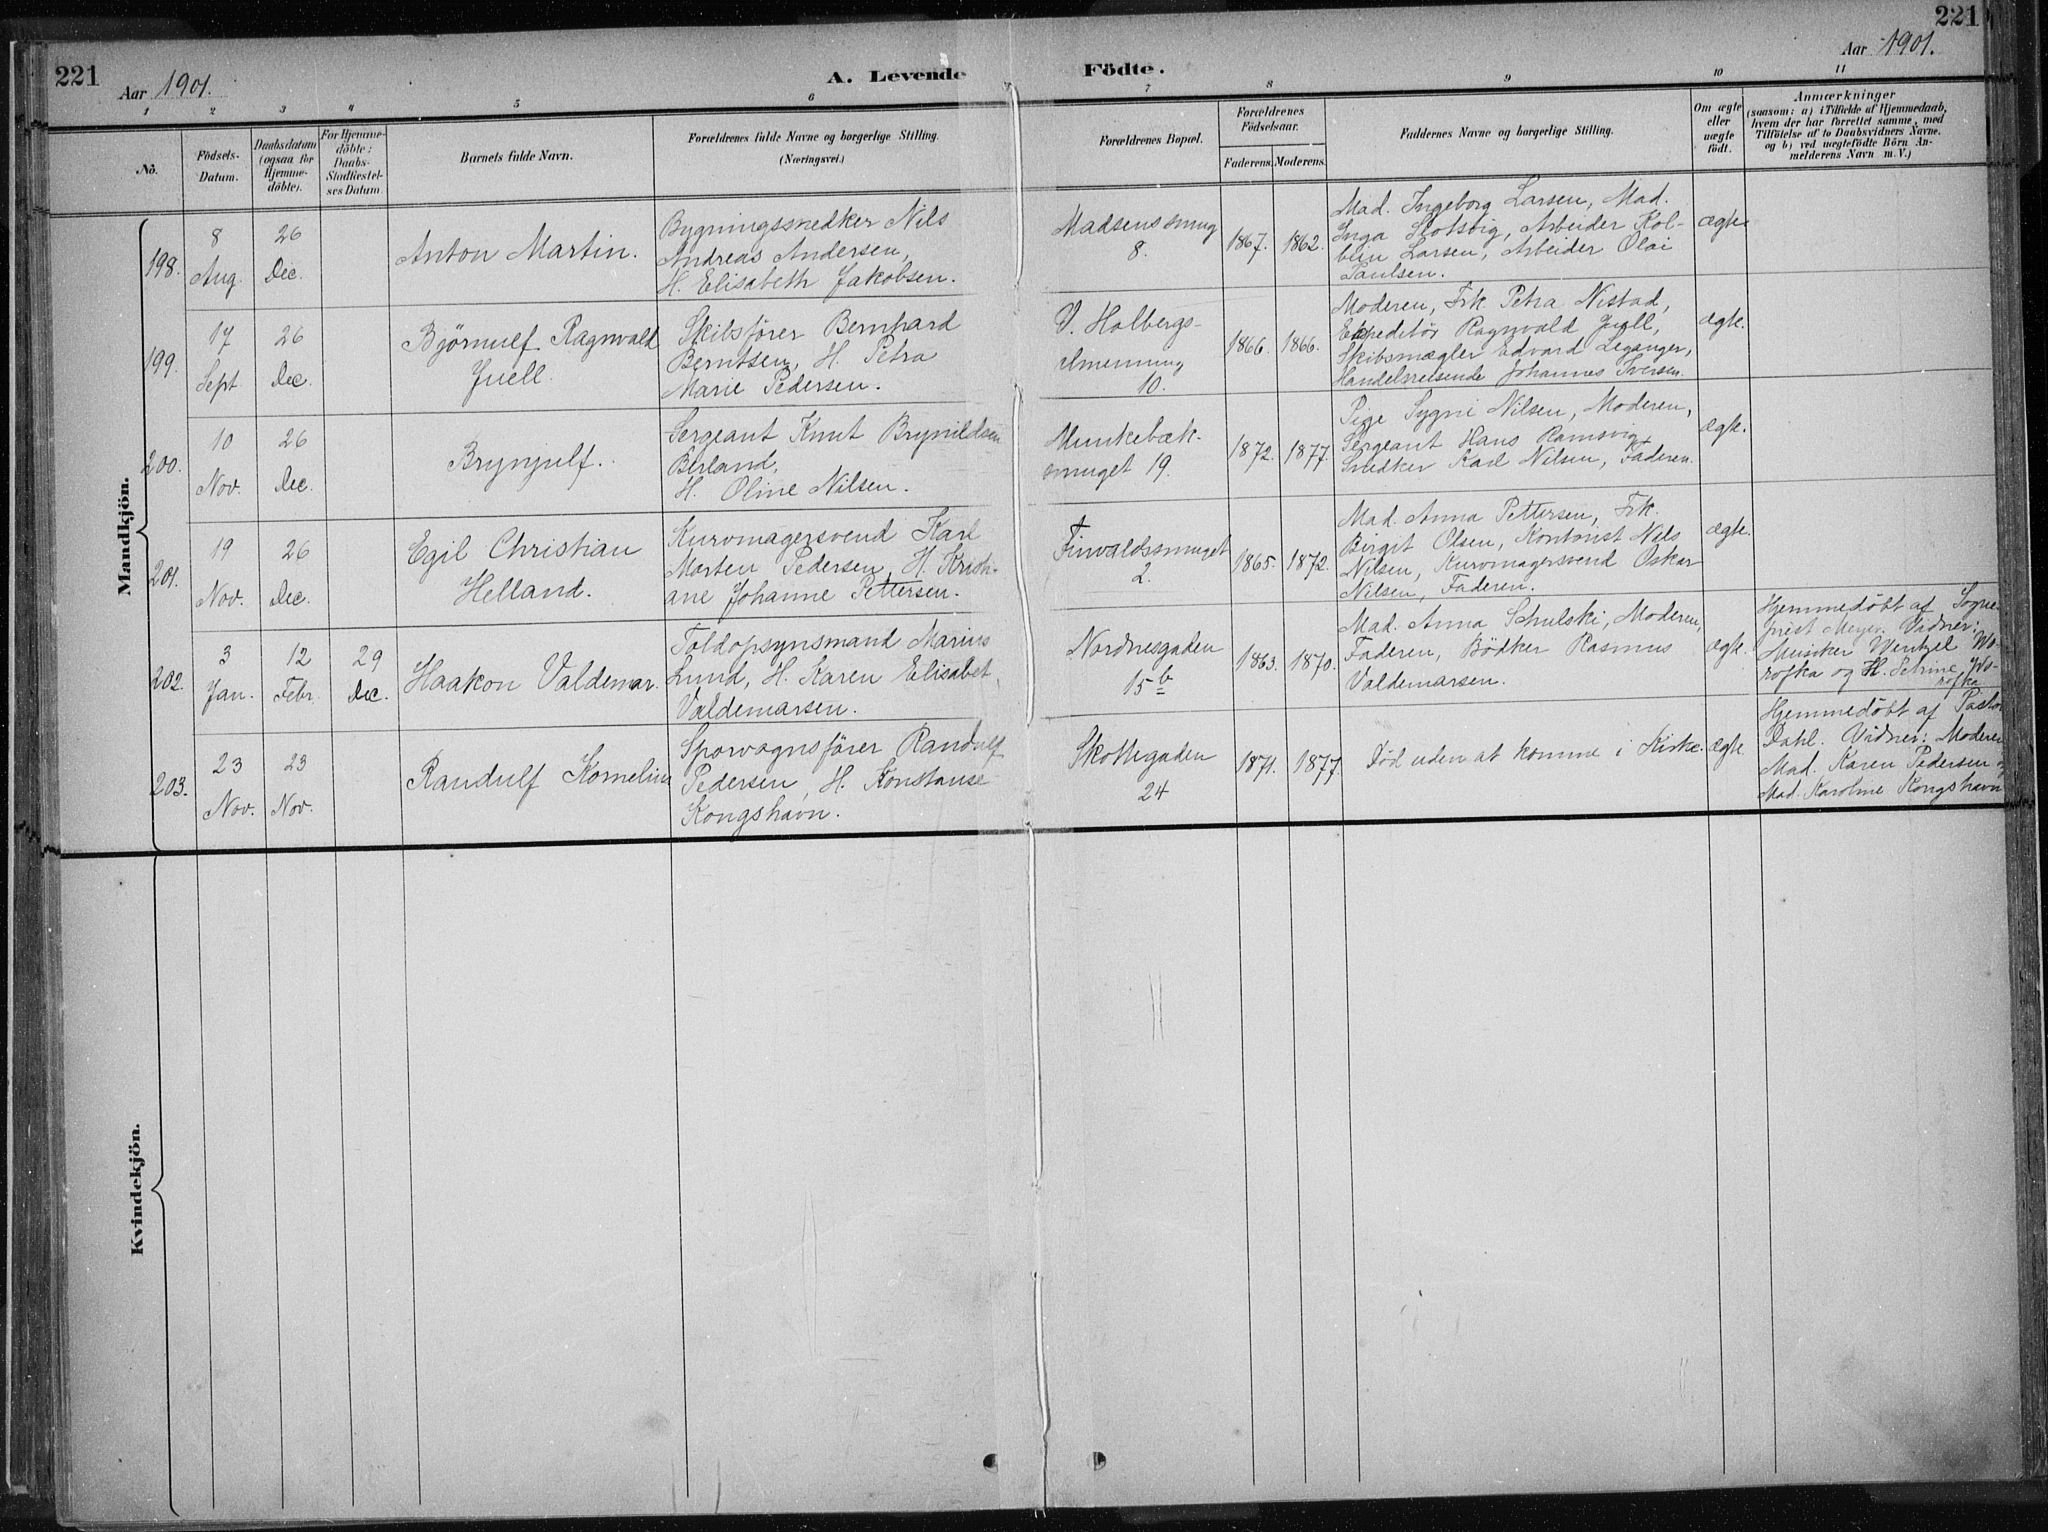 221
221
Aar 1901.
A. Levende Födte.
Aar 1901.
1 2 3 4 5 6 7 8 9 10 11
No.
Födsels-
Datum.
Daabsdatum
(ogsaa for
Hjemme-
döbte).
For Hjemme-
döbte:
Daabs-
Stadfæstel-
ses Datum
Barnets fulde Navn.
Forældrenes fulde Navne og borgerlige Stilling.
(Næringsvei.)
Forældrenes Bopæl.
Forældrenes
Födselsaar.
Faderens. Moderens.
Faddernes Navne og borgerlige Stilling.
Om ægte
eller
uægte
födt.
Anmærkninger
(saasom: a) i Tilfælde af Hjemmedaab,
hvem der har forrettet samme, med
Tilföielse af to Daabsvidners Navne.
og b) ved uægtefödte Börn An-
melderens Navn m. V.)
Mandkjön.
198.
8
Aug.
26
Dec.
Anton Martin.
Bygningssnedker Nils
Andreas Andersen,
H. Elisabeth Jakobsen.
Madsenssmug
8.
1867. 1862.
Mad. Ingeborg Larsen, Mad.
Inga Slotsvig, Arbeider Kol-
blin Larsen, Arbeider Olai
Paulsen.
ægte
199.
17
Sept
26
Dec.
Bjørnulf Ragnvald
Juell.
Skibsfører Bernhard
Berntsen, H. Petra
Marie Pedersen.
V. Holbergs-
almenning
10.
1866. 1866.
Moderen, Frk Petra Nistad,
Expeditør Ragnvald Juell,
Skibsmægler Edvard Leganger,
Handelsreisende Johannes Iversen.
ægte.
200.
10
Nov.
26
Dec.
Brynjulf.
Sergeant Knut Brynildsen
Berland,
H. Oline Nilsen.
Munkebæk-
smuget 19.
1872. 1877.
Pige Sygni Nilsen, Moderen,
Sergeant Hans Ramsvig,
Snedker Karl Nilsen, Faderen.
ægte.
201.
19
Nov.
26
Dec.
Egil Christian
Helland.
Kurvmagersvend Karl
Marten Pedersen, H. Kristi-
ane Johanne Pettersen.
Finvaldssmuget
2.
1865. 1872.
Mad. Anna Pettersen, Frk.
Birgit Olsen, Kontorist Nils
Nilsen, Kurvmagersvend Oskar
Nilsen, Faderen.
ægte.
202.
3
Jan.
12
Febr.
29
Dec.
Haakon Valdemar.
Toldopsynsmand Marius
Lund, H. Karen Elisabet
Valdemarsen.
Nordnesgaden
15 b
1863. 1870.
Mad. Anna Schulski, Moderen,
Faderen, Bödker Rasmus
Valdemarsen.
ægte.
Hjemmedöbt af Sogne-
prest Meyer. Vidner:
Musiker Wentzel Wo-
rofka og H. Petrine Wo-
rofka
203.
23
Nov.
23
Nov.
Randulf Kornelius
Sporvognsfører Randulf
Pedersen, H. Konstanse
Kongshavn.
Skottegaden
24
1871. 1877.
Död uden at komme i Kirke.
ægte
Hjemmedöbt af Pastor
Dahl. Vidner: Moderen
Mad. Karen Pedersen og
Mad. Karoline Kongshavn
Kvindekjön.